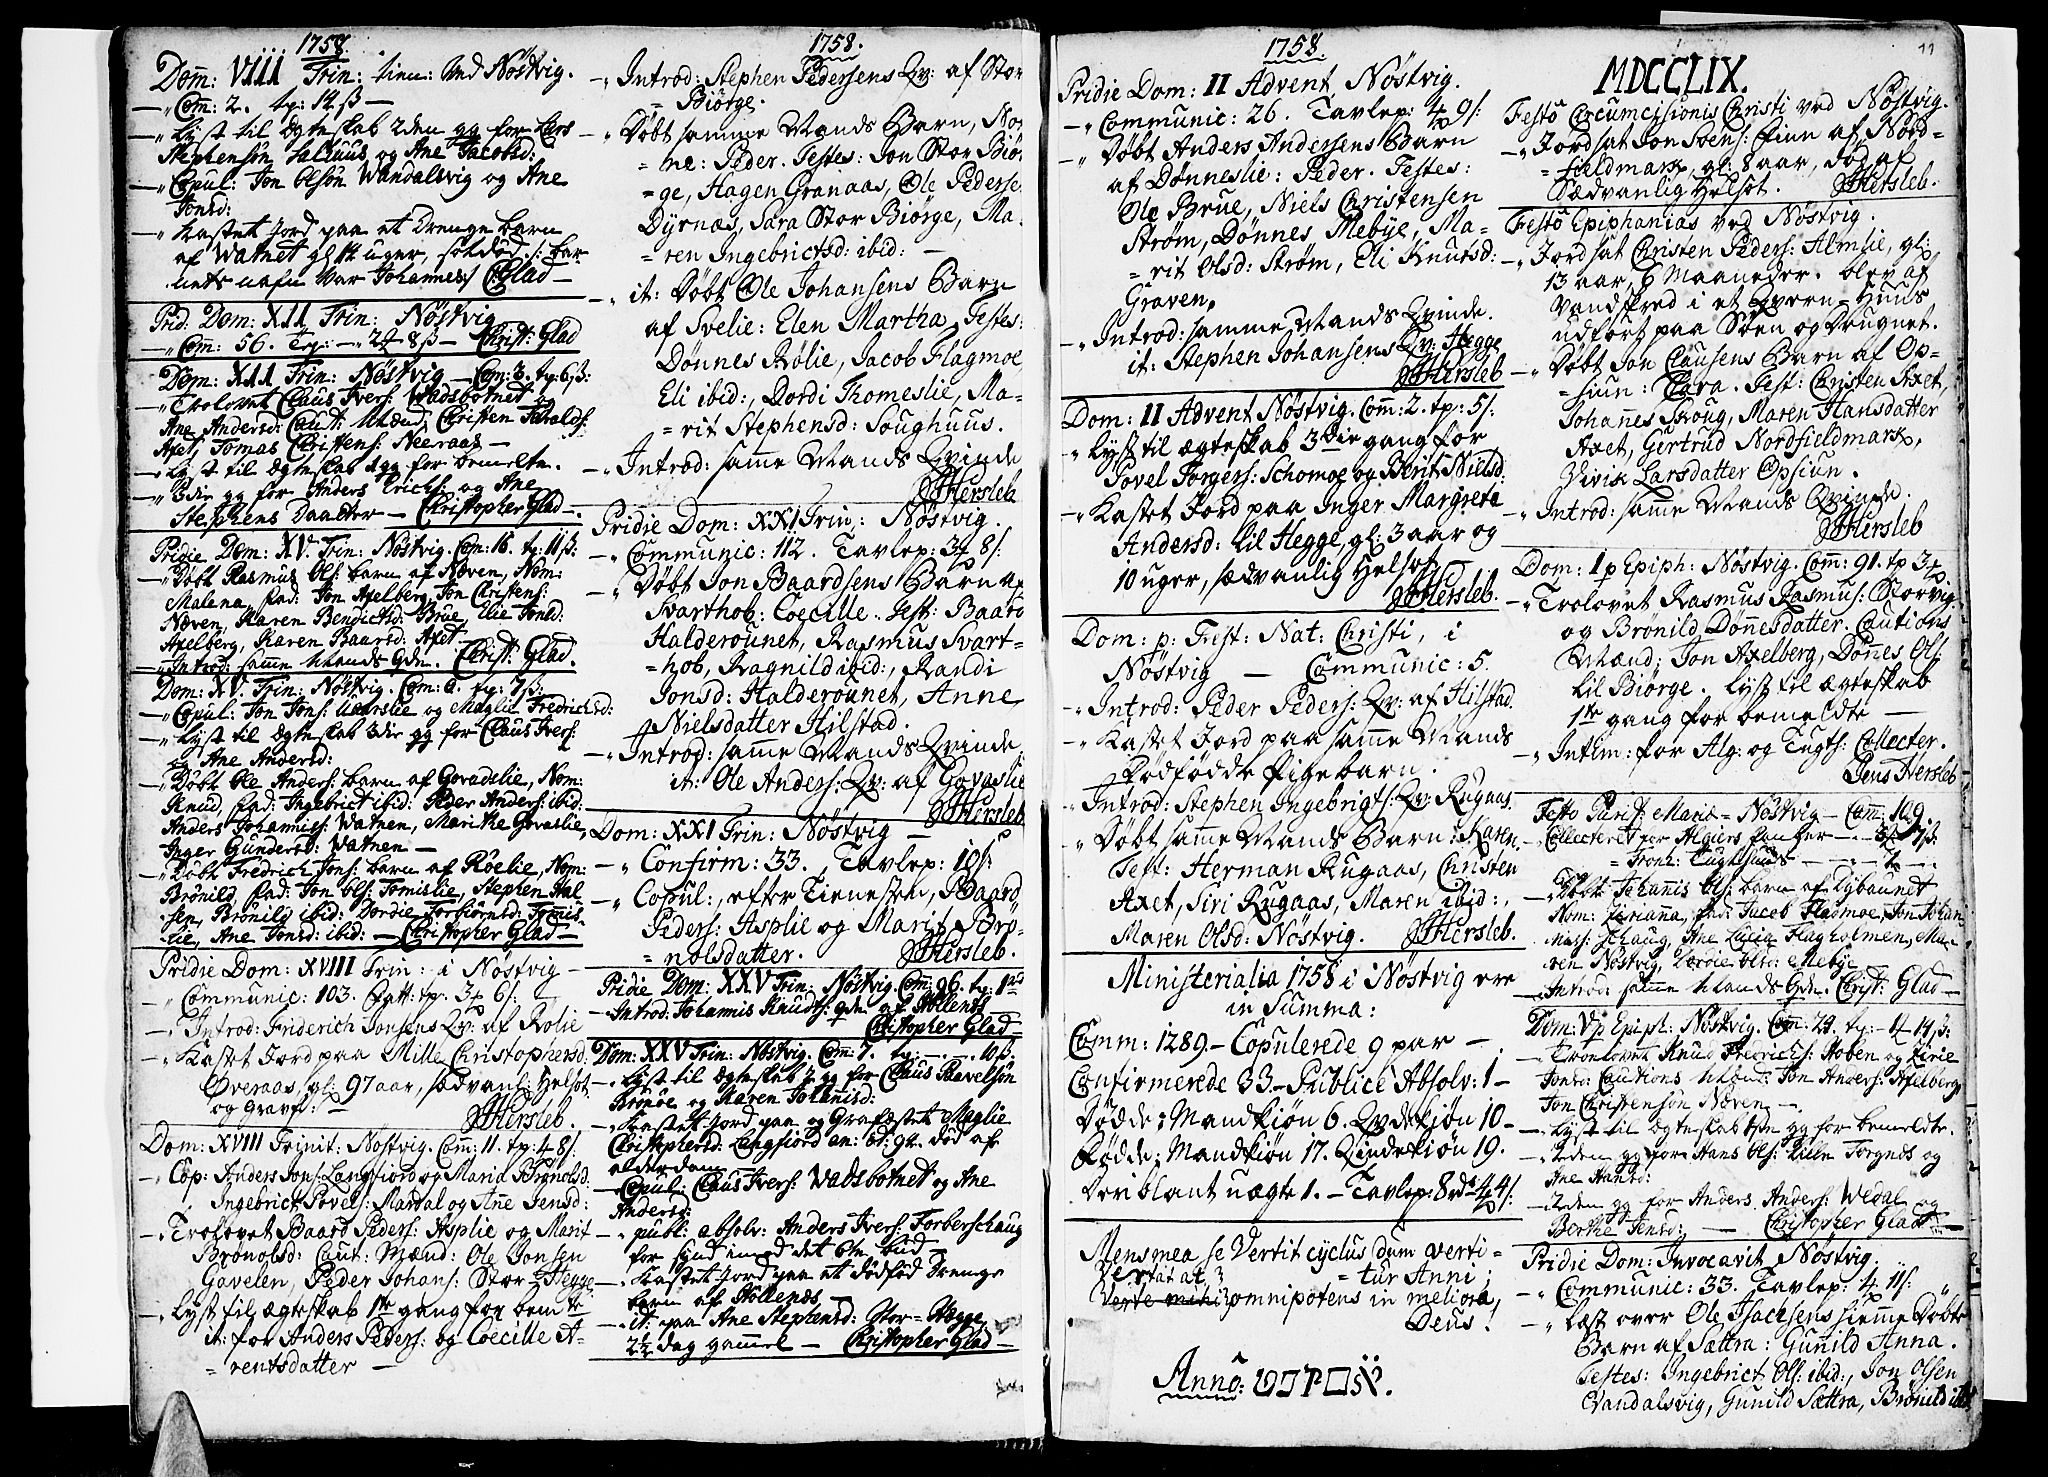 1758
Dom: VIII Trin: tien: ved Nøstvig.
—„ Com: 2. tp: 14 ß —
—„ Lyst til Egteskab 2den gg for Lars
Stephensøn Salthuus og Ane Jacobsd:
—„ Copul: Jon Olsøn Wandalsvig og Ane
Jonsd:
—„ Kastet Jord paa et Drenge barn
af Watnet gl 14 uger, sotdød. /: bar
nets nafn var Johannes :/ C: Glad —
Prid: Dom: XII Trin: Nøstvig
—„ Com: 56. Tp: —„ 2 8 ß — Christ: Glad
Dom: XII Trin: Nøstvig — Com: 3. tp: 6 ß:
—„ Trolovet Claus Ivers: Wadsbotnet og
Ane Andersd: Caut: Mænd, Christen Haralds:
Axet, Tomas Christens: Neeraas —
—„ Lyst til Egteskab 1 gg for bemelte.
—„ 3die gg for Anders Erichs: og Ane
Stephens Daatter — Christopher Glad —.
Pridie Dom: XV. Trin: Nøstvig. Com: 16. tp: 11 ß:
—„ Døbt Rasmus Ols: barn af Næven, Nom:
Malena, fad: Jon Axelberg, Jon Christens:
Næven, Karen Bendictsd: Brue, Elie Jonsd:
Axelberg, Karen Baarsd: Axet —
—„ Introd: samme Mands Qde. Christ: Glad.
Dom: XV. Trin: Nøstvig. Com: 6. tp: 7 ß:
—„ Copul: Jon Jons: Uhrslie og Maglie Fredrichsd:
—„ Lyst til Egteskab 3die gg for Claus Ivers:
og Ane Andersd:
—„ Døbt Ole Anders: barn af Govaslie, Nom:
Knud, fad: Ingebrict ibid: Peder Anders: ibid:
Anders Johanniss: Watnen, Marithe Govaslie,
Inger Gundersd: Watnen —
—„ Døbt Fredrich Jons: barn af Røelie, Nom:
Brønild, fad: Jon Ols: Tomislie, Stephen Hal-
sen, Brønild ibid: Dordie Torbiørnsd: Tomis-
lie, Ane Jonsd: ibid: — Christopher Glad —
Pridie Dom: XVIII Trin: i Nøstvig —
—„ Communic: 103. tp: 3 6 ß: —
—„ Introd: Friderich Jonsens Qv: af Rølie
—„ Kastet Jord paa Mille Christophersd:
Øveraas, gl: 97 aar, sædvanl: Helsot
og Gravf: — JHersleb.
Dom: XVIII Trinit: Nøstvig. Com: 11. tp: 4 8 ß:
—„ Cop: Anders Jons: Langfiord og Maria Brønolsd:
Ingebrict Povels: Mardal og Ane Jensd:
—„ Trolovet Baard Peders: Asplie og Marit
Brønolsd: Caut: Mænd: Ole Jonsen
Gavelen, Peder Johans: Stor-Hegge
—„ Lyst til ægteskab 1te gang for bemte
it: for Anders Peders: og Coecille A-
= rentsdatter —
1758.
—„ Introd: Stephen Pedersens Qv: af Stor
= Biørge.
—„ Døbt samme Mands Barn, No-
= ne: Peder. Testes: Jon Stor Biør
= ge, Hagen Granaas, Ole Pederse
Dyrnæs, Sara Stor Biørge, Ma-
= ren Ingebrictsd: ibid: —
—„ it: Døbt Ole Johansens Barn
af Svelie: Elen Martha, Testes:
Dønnes Rølie, Jacob Flagmoe,
Eli ibid:, Dordi Thomeslie, Ma-
= rit Stephensd: Soughuus.
—„ Introd: samme Mands Qvinde
JHersleb
Pridie Dom: XXI Trin: Nøstvig.
—„ Communic: 112. Tavlep: 3 8 ß:
—„ Døbt Jon Baardsens Barn af
Svarthob: Coecille. Test: Baard
Halderounet, Rasmus Svart-
= hob, Ragnild ibid:, Randi
Jonsd: Halderounet, Anne
Nielsdatter Hilstad.
—„ Introd: samme Mands Qvinde
it: Ole Anders: Qv: af Govaslie
JHersleb
Dom: XXI Trin: Nøstvig —
—„ Confirm: 33. Tavlep: 10 ß:
—„ Copul:, efter Tienesten, Baard
Peders: Asplie og Marit Brø-
= nolsdatter. JHersleb.
Pridie Dom: XXV Trin: Nøstvig. Com: 96. tp: 1
—„ Introd: Johannis Knudts: qde af Hollenes —
Christopher Glad —
Dom: XXV Trin: Nøstvig. Com: 7. tp. —„ — 10 ß:
—„ Lyst til Egteskab gg for Claus Pavelsøn
Brønøe og Karen Johanisd:
—„ Kastet Jord paa og Grafæstet Maglie
Christophersd: Langfiord an: æt: 92. død af
alderdom —
—„ Copul: Claus Ivers: Wadsbotnet og Ane
Andersd:
—„ publ: absolv: Anders Ivers: Torberschaug
for synd imod det 6te bud —
—„ Kastet Jord paa et dødfød Drenge
barn af Hollenes —
—„ it: paa Ane Stephensd: Stor-Hægge,
2½ dag gammel — Christopher Glad —
1758.
Pridie Dom: II Advent, Nøstvig.
—„ Communic: 26. Tavlep: 4 9 ß:
—„ Døbt Anders Andersens Barn
af Dønneslie: Peder. Testes:
Ole Brue, Niels Christensen
Strøm, Dønnes Mebye, Ma-
= rit Olsd: Strøm, Eli Knutsd:
Graven.
—„ Introd: samme Mands Qvinde.
it: Stephen Johansens Qv: Hegge
JHersleb
Dom: II Advent Nøstvig. Com: 2. tp: 5 ß:
—„ Lyst til ægteskab 3die gang for
Povel Torgers: Schomoe og Berit Nielsd:
—„ Kastet Jord paa Inger Margreta
Andersd: Lil Hegge, gl: 3 aar og
10 uger, sædvanlig Helsot
JHersleb.
Dom: p: Fest: Nat: Christi, i
Nøstvig — Communic: 5.
—„ Introd: Peder Peders: Qv: af Hilstad.
—„ Kastet Jord paa samme Mands
Dødfødde Pigebarn.
—„ Introd: Stephen Ingebrigts: Qv: Rugaas.
—„ Døbt samme Mands Barn: Karen,
Test: Herman Rugaas, Christen
Axet, Siri Rugaas, Maren ibid:,
Maren Olsd: Nøstvig. JHersleb.
Ministerialia 1758 i Nøstvig ere
in Summa:
Comm: 1289. — Copulerede 9 par —
Confirmerede 33. — Publice Absolv: 1 —
Døde: Mandkiøn 6. Qvdekiøn 10 —
Fødde: Mandkiøn 17. Qvindekiøn 19.
Deriblant uægte 1. — Tavlep: 8 rd 4 4 ß:
Mens mea se Vertit cyclus dum verti-
= tur Anni;
Vertat at,
Verte mihi omnipotens in meliora,
Deus!
Anno:
11
MDCCLIX.
Festo Circumcisionis Christi ved Nøstvig.
—„ Jordsat Jon Svens: Finn af Nord-
= fieldmark, gl: 8 aar, død af
Sædvanlig Helsot. JHersleb.
Festo Epiphanias ved Nøstvig.
—„ Jordsat Christen Peders: Almlie, gl:
13 aar, 6 Maaneder. blev af
Vandskred i et Qvern-Huus
udført paa Søen og Drugnet.
—„ Døbt Jon Clausens Barn af Op-
= siun: Clara. Test: Christen Axet,
Johannes Kroug, Maren Hansdatter
Axet, Gertrud Nordfieldmark,
Divik Larsdatter Opsiun.
—„ Introd: same Mands Qvinde.
JHersleb
Dom: 1 p Epiph: Nøstvig. Com: 91. tp 3
—„ Trolovet Rasmus Rasmus: Storvig
og Brønild Dønnesdatter. Cautions
Mænd: Jon Axelberg, Dønes Ols:
Lil Biørge. Lyst til ægteskab
1te gang for bemeldte —
—„ Intim: for Alg: og Tugts: Collecter.
Jens Hersleb
Festo Purif: Mariæ — Nøstvig — Com: 109.
—„ Collecteret for Algiers fanger — „ 3 7 ß:
— Tronh: Tugthuus — — „ — 2 —„
—„ Døbt Johannis Ols: barn af Dybaunet
Nom: Zirianna, fad: Jacob Fladmoe, Jon Johan-
niss: Schaug, Ane Lucia Flagholmen, Ma-
ren Nøstvig, Dordie Olsd: Mebye —
—„ Introd: samme Mands Qde. Christ: Glad —
Dom: V p Epiph: Nøstvig. Com: 24. tp: — 4 14 ß:
—„ Troelovet Knud Fredrichs: Hoben og Zirie
Jonsd: Cautions Mænd: Jon Anders: Axelberg,
Jon Christensøn Næven —.
—„ Lyst til Egteskab 1ste gg for bemeldte.
—„ 2den gg for Hans Ols: Lille Torgnes og
Ane Hansd:
—„ 2den gg for Anders Anders: Wedal og
Berthe Jensd: — Christopher Glad —
Pridie Dom: Invocavit Nøstvig.
—„ Communic: 33. Tavlep: 4 11 ß:
—„ Læst over Ole Isachsens hiemme Døbte
Barn af Sættra: Gunild Anna.
Testes: Ingebrict Ols: ibid:, Jon Olsen
Vandalsvig, Gunild Sættra, Brønild ibid